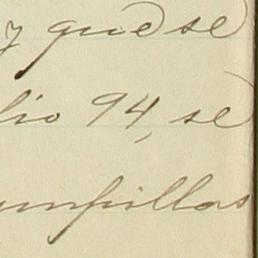 y que se
lio 94, se
umpillas